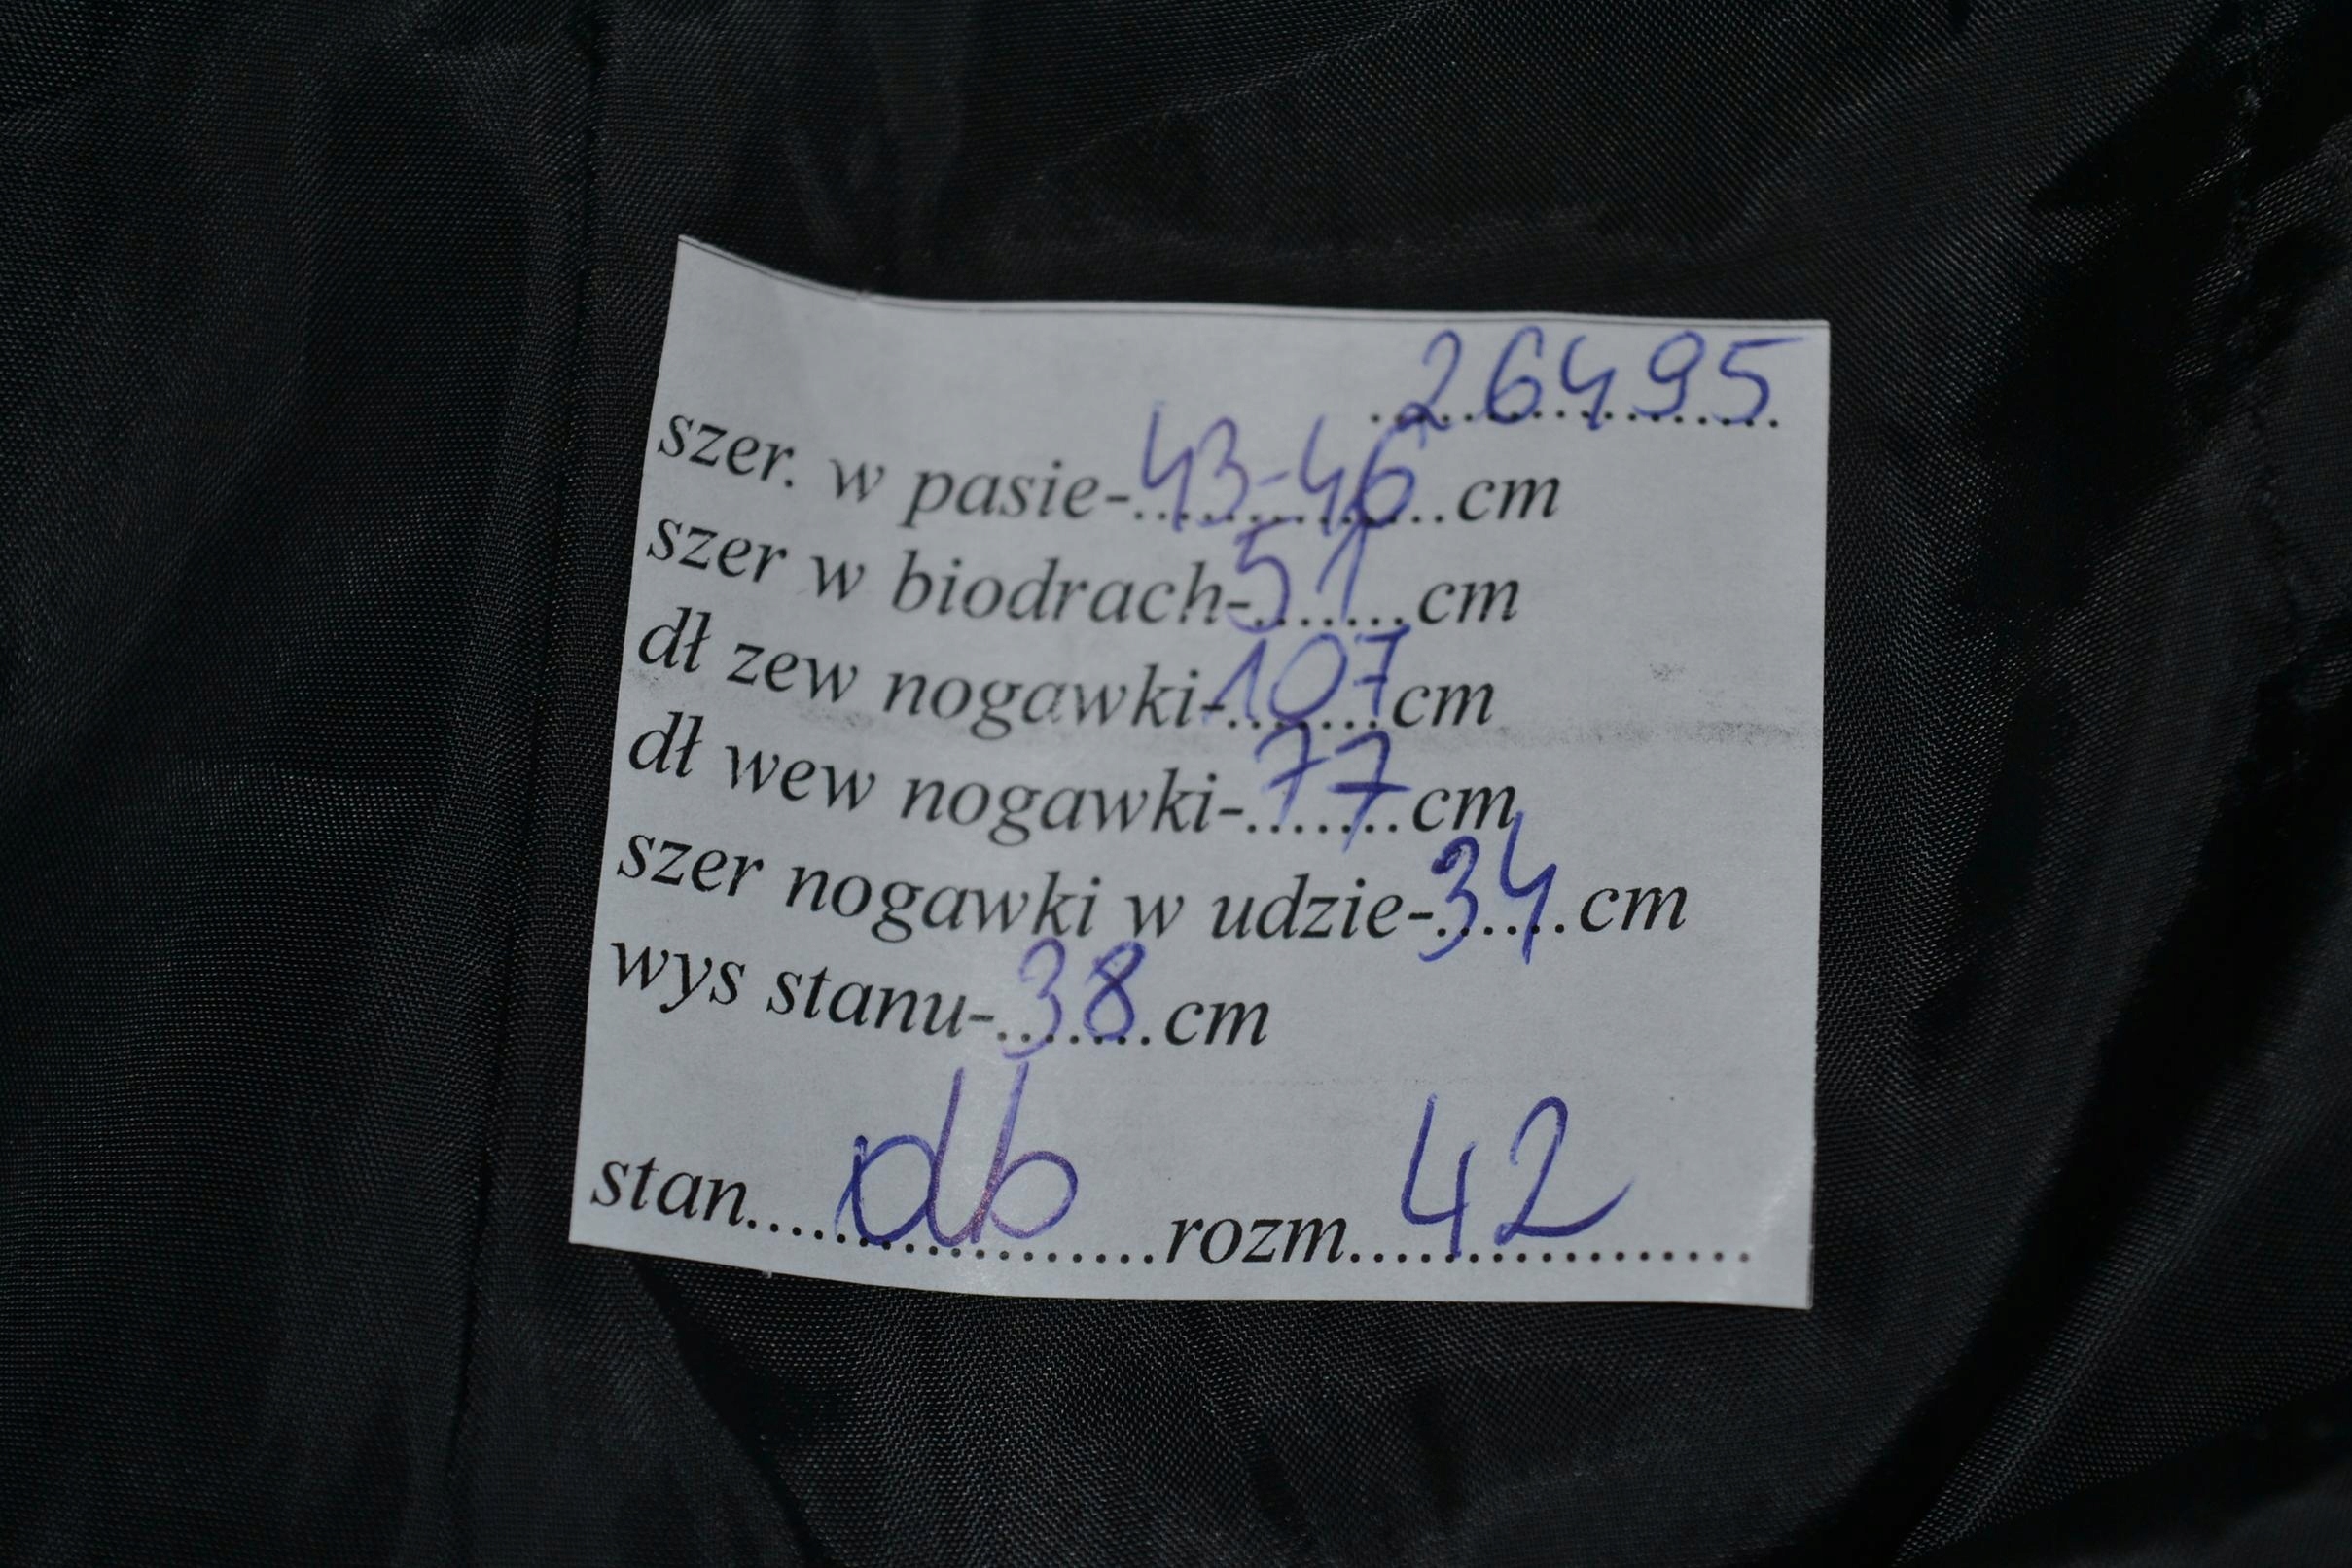 26495
szer. w pasie-43-46cm
szer w biodrach-51cm
dł zew nogawki-107cm
dł wew nogawki-77cm
szer nogawki w udzie-34cm
wys stanu-38cm
stan....db....rozm....42....